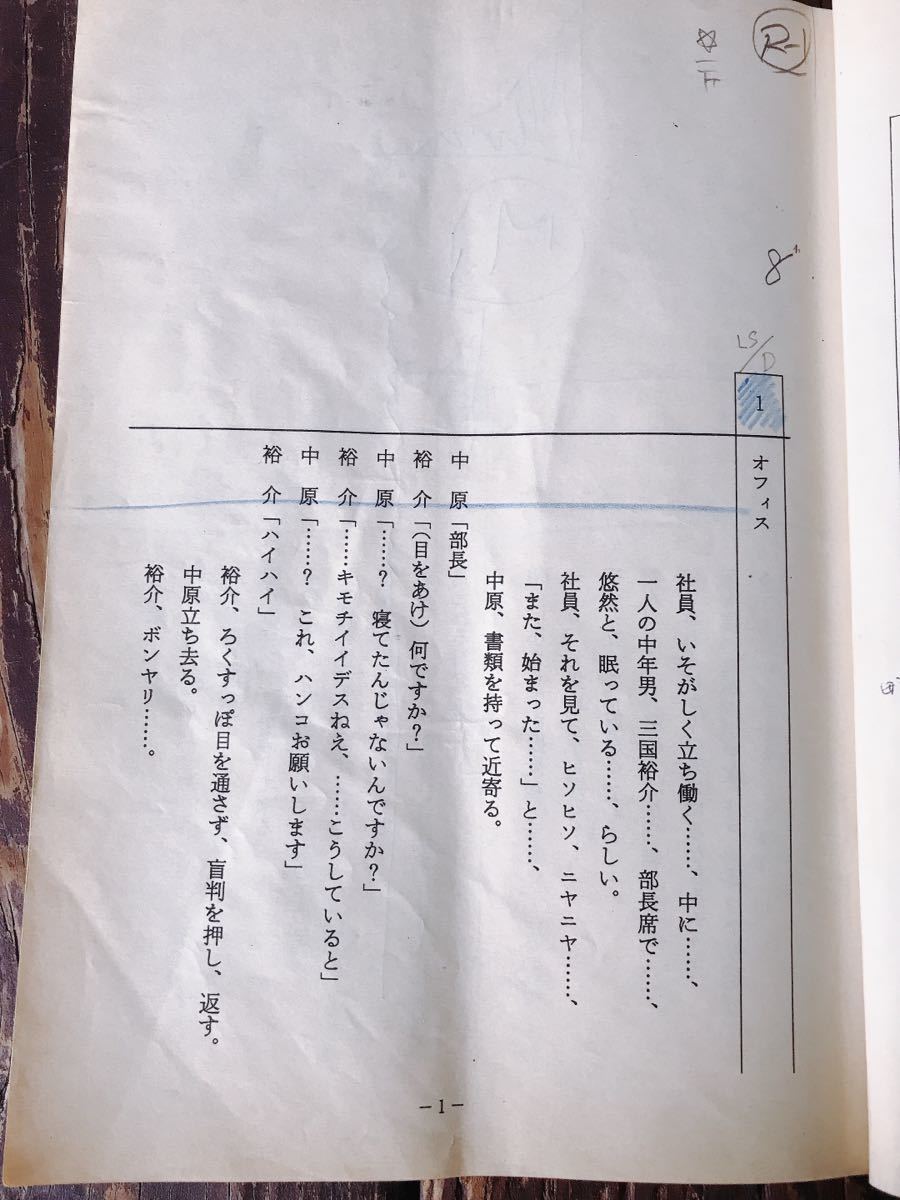 R-1
8
LS/D
1 オフィス
社員、いそがしく立ち働く……、中に……、
一人の中年男、三国裕介……、部長席で……、
悠然と、眠っている……、らしい。
社員、それを見て、ヒソヒソ、ニヤニヤ……、
「また、始まった……」と……、
中原、書類を持って近寄る。
中 原「部長」
裕 介「(目をあけ) 何ですか?」
中 原「……? 寝てたんじゃないんですか?」
裕 介「……キモチイイデスねえ、……こうしていると」
中 原「……? これ、ハンコお願いします」
裕 介「ハイハイ」
裕介、ろくすっぽ目を通さず、盲判を押し、返す。
中原立ち去る。
裕介、ボンヤリ……。
－1－